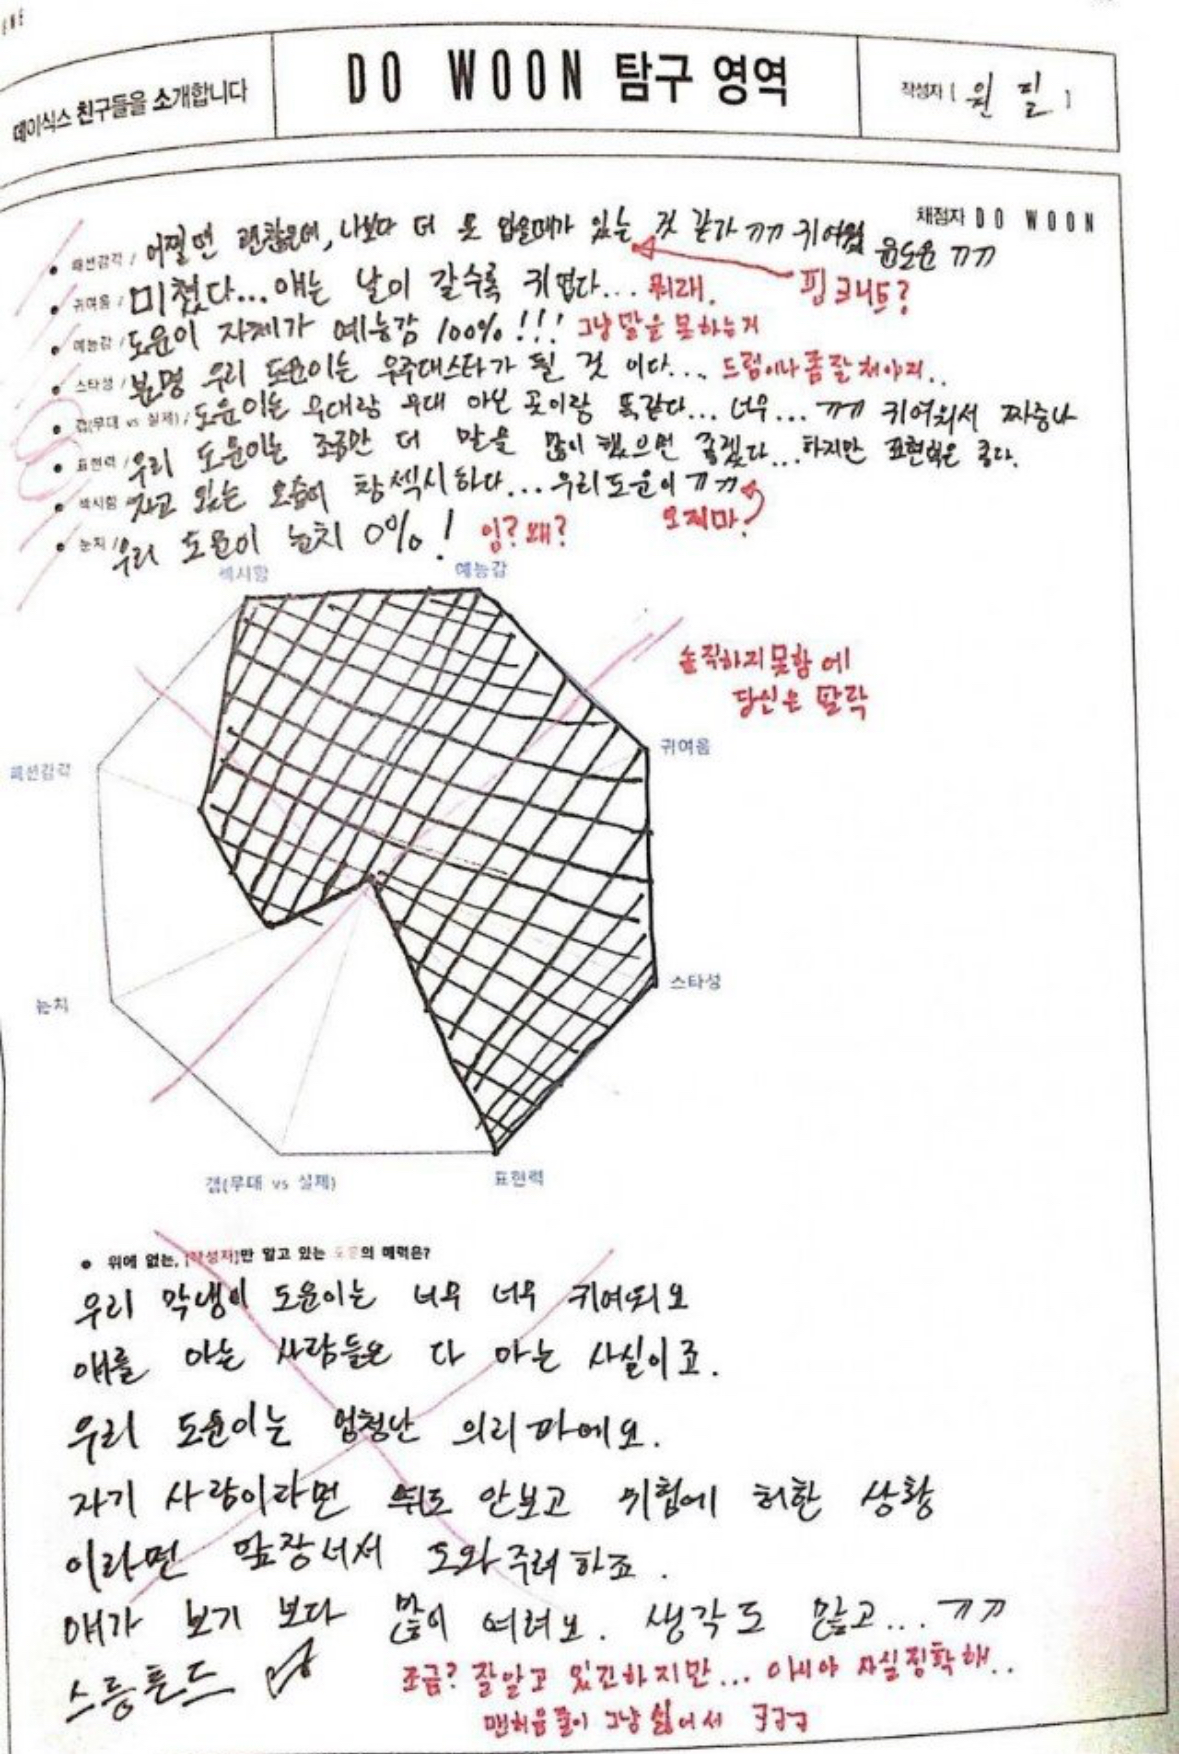 데이식스 친구들을 소개합니다
DO WOON 탐구 영역
작성자 [ 원 필 ]
채점자 DO WOON
• 패션감각 / 어쩔땐 괜찮은데, 나보다 더 못 입을때가 있는 것 같다 ㄲㄲ 귀여웡 윤도운 ㄲㄲ
핑크니트?
• 귀여움 / 미쳤다... 얘는 날이 갈수록 귀엽다... 뭐래.
• 예능감 / 도운이 자체가 예능감 100% !!! 그냥 말을 못하는거
• 스타성 / 분명 우리 도운이는 우주대스타가 될 것 이다... 드럼이나 좀 잘 쳐야지..
• 갭(무대 vs 실제) / 도운이는 무대랑 무대 아닌 곳이랑 똑같다... 너무... ㄲㄲ 귀여워서 짜증나
• 표현력 / 우리 도운이는 조금만 더 말을 많이 했으면 좋겠다... 하지만 표현력은 좋다.
• 섹시함 자고 있는 모습이 참 섹시하다... 우리도운이 ㄲㄲ
오지마.
• 눈치 / 우리 도운이 눈치 0% ! 잉? 왜?
섹시함
예능감
솔직하지 못함 에
당신은 탈락
귀여움
패션감각
스타성
눈치
갭(무대 vs 실제)
표현력
• 위에 없는, [작성자]만 알고 있는 도운의 매력은?
우리 막냉이 도운이는 너무 너무 귀여워요
얘를 아는 사람들은 다 아는 사실이죠.
우리 도운이는 엄청난 의리파에요.
자기 사람이라면 뒤도 안보고 위험에 처한 상황
이라면 앞장서서 도와주려 하죠.
얘가 보기 보다 많이 여려요. 생각도 많고... ㄲㄲ
스릉흔드
조금? 잘알고 있긴하지만... 아니야 사실 정확해..
맨처음 줄이 그냥 싫어서 ㅋㅋㅋ